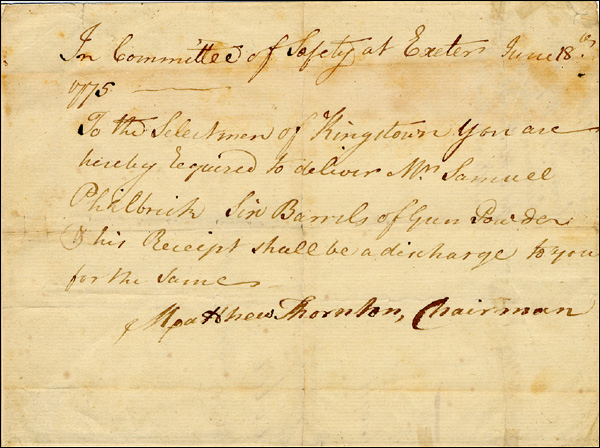 In Committee of Safety at Exeter June 18th
1775 ——
To the Selectmen of Kingstown You are
hereby Required to deliver Mr Samuel
Philbrick Six Barrels of Gun Powder
& his Receipt shall be a discharge to you
for the Same
Matthew Thornton, Chairman